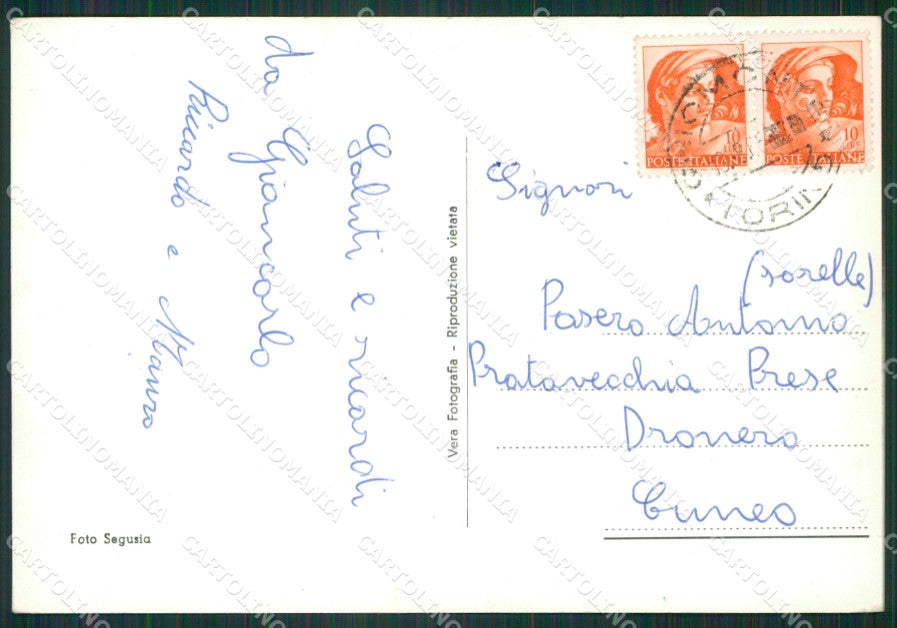 Saluti e ricordi
da Giancarlo
Riccardo e Mauro
Vera Fotografia - Riproduzione vietata
Foto Segusia
10
LIRE
POSTE ITALIANE
10
LIRE
POSTE ITALIANE
TORINO
Signori
(sorelle)
Pasero Antonio
Pratavecchia Prese
Dronero
Cuneo
CARTOLINOMANIA